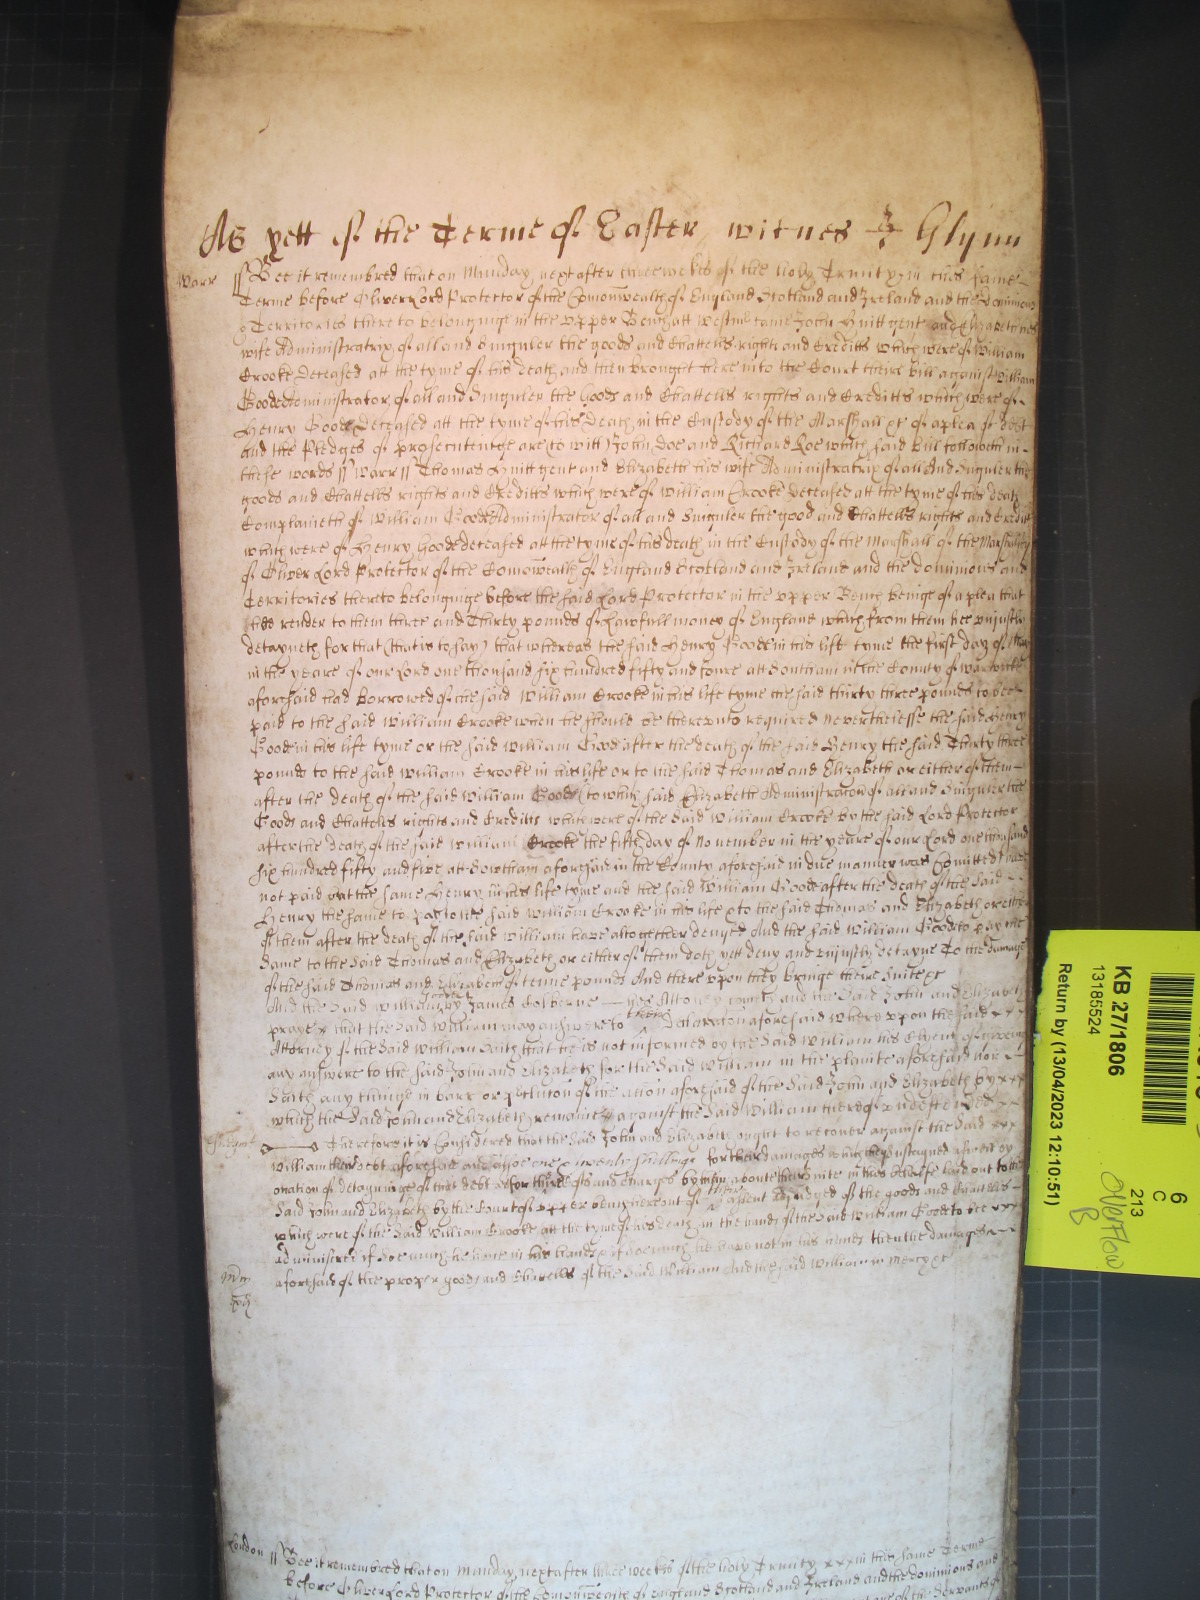 As yett of the Terme of Easter witnes Glynn
Warr // Bee it remembred that on Munday next after three weekes of the Holy Trinity in this same
Terme before Oliver Lord Protector of the Comonwealth of England Scotland and Ireland and the Dominions
Territories there to belonginge in the upper Bench att Westm came John Huitt gent and Elizabeth his
wife Administratrix of all and Singuler the goods and Chattells rights and Creditts which were of William
Crooke deceased att the tyme of his death and then brought here into the Court there bill against William
Goode Administrator of all and Singuler the Goods and Chattells rights and Creditts which were of
Henry Goode deceased att the tyme of his Death in the Custody of the Marshall &c of a plea of debt
And the Pledges of prosecutinge are to witt John Doe and Richard Roe which said bill followeth in
these words // Warr // Thomas Huitt gent and Elizabeth his wife Administratrix of all And Singuler the
goods and Chattells rights and Creditts which were of William Crooke deceased att the tyme of his death
Complaineth of William Goode Administrator of all and Singuler the good and Chattells rights and Creditts
which were of Henry Goode deceased att the tyme of his death in the Custody of the Marshall of the Marshalsey
of Oliver Lord Protector of the Comonwealth of England Scotland and Ireland and the dominions and
Territories thereto belonginge before the said Lord Protector in the upper Bench beinge of a plea that
hee render to them three and Thirty pounds of Lawfull money of England which from them hee unjustly
detayneth for that (that is to say) that whereas the said Henry Goode in his life tyme the first day of
in the yeare of our Lord one thousand six hundred fifty and foure att Southam in the County of Warwicke
aforesaid had borrowed of the said William Crooke in his life tyme the said thirty three pounds to bee
paid to the said William Crooke when he should be thereunto required Neverthelesse the said Henry
Goode in his life tyme or the said William Good after the death of the said Henry the said Thirty three
pounds to the said William Crooke in his life or to the said Thomas and Elizabeth or either of them
after the death of the said William Goode (to which said Elizabeth Administracon of all and Singuler the
Goods and Chattells rights and Creditts which were of the said William Crooke by the said Lord Protector
after the death of the said William Crooke the fifth day of November in the yeare of our Lord one thousand
six hundred fifty and five at Southam aforesaid in the County aforesaid in due manner was Comitted have
not paid but the same Henry in his life tyme and the said William Goode after the death of the said
Henry the same to pay to the said William Crooke in his life to the said Thomas and Elizabeth or either
of them after the death of the said William have altogether denyed And the said William Good to pay the
same to the said Thomas and Elizabeth or either of them doth yett deny and unjustly detayne To the damage
of the said Thomas and Elizabeth of tenne pounds And there upon they bringe there suite &c
And the said William by James Colborne his Attorney cometh and the said John and Elizabeth
praye that the said William may answere to theire Declaration aforesaid Where upon the said
Attorney of the said William saith that he is not informed by the said William his Clyent of giveing
any answere to the said John and Elizabeth for the said William in the plainte aforesaid nor
saith any thinge in barr or of the action aforesaid of the said John and Elizabeth by
which the said John and Elizabeth remaineth against the said William thereof undefended
Therefore it is Considered that the said John and Elizabeth ought to recover against the said
William their debt aforesaid and alsoe one & twenty shillings for their damages which they sustayned aswell by
occation of detayninge of that debt as for their costs and Charges by them aboute their suite in this behalfe laid out to the
said John and Elizabeth by the Court of upper bench here of their assent adjudged of the goods and Chattells
which were of the said William Crooke att the tyme of his death in the hands of the said William Goode to bee
administred if soe much he have in his hands & if soe much he have not in his hands then the damages
aforesaid of the proper goods and Chattells of the said William And the said William in mercy &c
London // Bee it remembred that on Munday next after three weekes of the holy Trinity in this same Terme
before Oliver Lord Protector of the Comonwealth of England Scotland and Ireland and the dominions and
of the Servants
KB 27/1806
13185524
Return by (13/04/2023 12:10:51)
6
C
213
Overflow
B